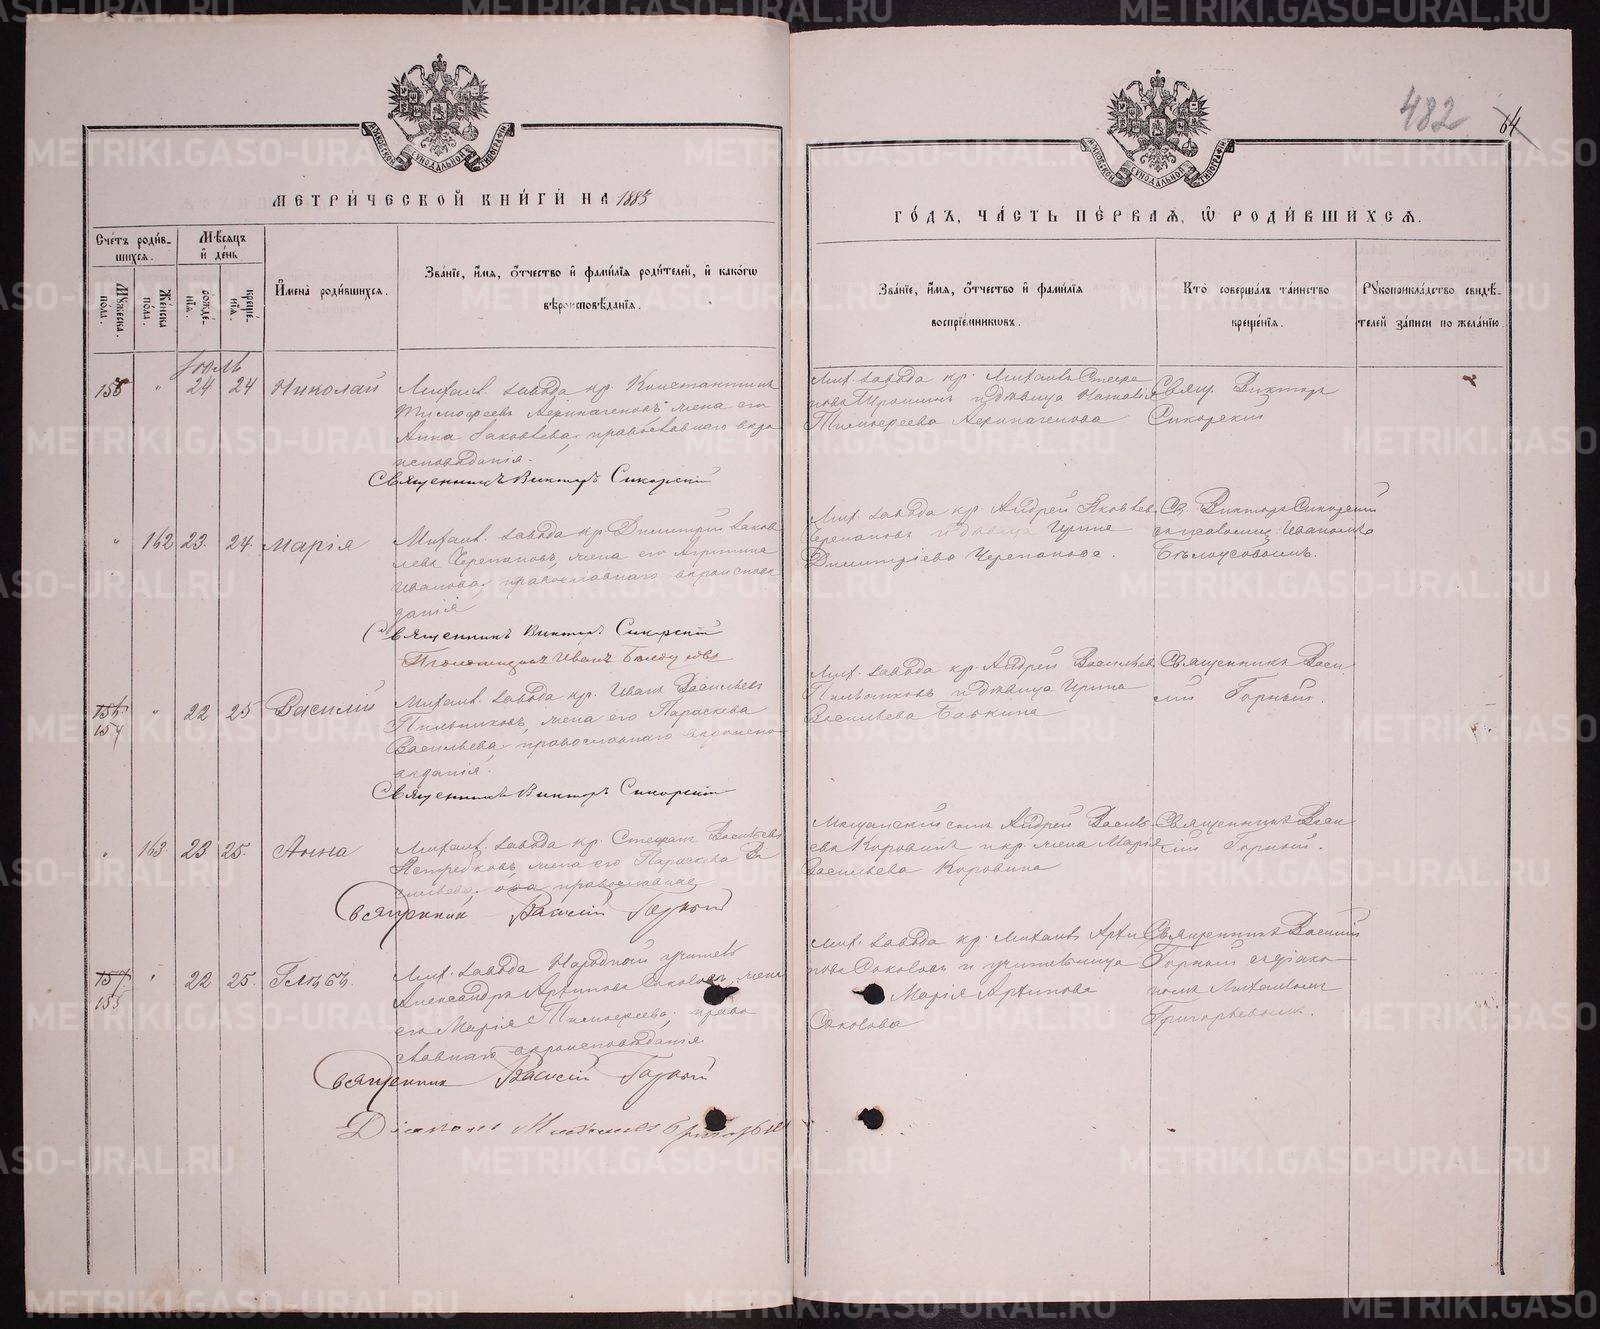 482
64
МЕТРИ́ЧЕСКОЙ КНИ́ГИ НА 1885
ГО́ДЪ, ЧА́СТЬ ПЕ́РВАЯ, Ѿ РОДИ́ВШИХСЯ.
Сче́тъ роди́в-
шихся.
Мꙋжеска по́ла.
Же́нска по́ла.
Мѣ́сяцъ
и҆ де́нь
рожде́-
нїя.
креще́-
нїя.
И҆мена̀ роди́вшихся.
Зва́нїе, и҆́мя, ѻ҆́тчество и҆ фами́лїя роди́телей, и҆ како́гѡ
вѣроисповѣ́данїя.
Зва́нїе, и҆́мя, ѻ҆́тчество и҆ фами́лїя
воспрїе́мниковъ.
Кто̀ соверша́лъ та́инство
креще́нїя.
Рꙋкоприкла́дство свидѣ́-
телей за́писи по жела́нїю.
Іюль
156 " 24 24 Николай
Михаил. завода кр. Константинъ
Тимофеевъ жена его
Анна Іаковлева, православнаго вѣро
исповѣданія.
Священникъ Викторъ Сикорскій
Мих. завода кр. Михаилъ Стефа
новъ и дѣвица Наталія
Тимофеева
Свящ. Викторъ
Сикорскій
" 162 23. 24. Марія
Михаил. завода кр. Димитрій Іаков
левъ Черепановъ, жена его Агрипина
Иванова, православнаго вѣроисповѣ
данія
Священникъ Викторъ Сикорскій
Псаломщикъ Иванъ Бѣлоусовъ
Мих. завода кр. Андрей Яковлев
Черепановъ и дѣвица Ирина
Димитріева Черепанова.
Св. Викторъ Сикорскій
съ псаломщ. Иваномъ
Бѣлоусовымъ.
156 157 " 22 25 Василій
Михаил. завода кр. Иванъ Васильевъ
Пильниковъ, жена его Параскева
Васильева, православнаго вѣроиспо
вѣданія.
Священникъ Викторъ Сикорскій
Мих. завода кр. Андрей Васильевъ
Пильниковъ и дѣвица Ирина
Васильева Бабкина
Священникъ Васи
лій Горный.
" 163 23 25. Анна
Михаил. завода кр. Стефанъ Васильевъ
Ястребковъ, жена его Параскева Ва
сильева, оба православные
Священник Василій Горный
Мещанскій сынъ Андрей Василь-
евъ Коровинъ и кр. жена Марія
Васильева Коровина
Священникъ Васи
лій Горный.
157 158 " 22 25. Глѣбъ.
Мих. завода Народной учитель
Александръ Архиповъ Соколовъ, жена
его Марія Тимофеева, право
славнаго вѣроисповѣданія
Священник Василій Горный
Діаконъ Михаилъ Григорьев
Мих. завода кр. Михаилъ Архи
повъ Соколовъ и учительница
Марія Архипова
Соколова
Священникъ Василій
Горный съ діако-
номъ Михаиломъ
Григорьевымъ.
METRIKI.GASO-URAL.RU